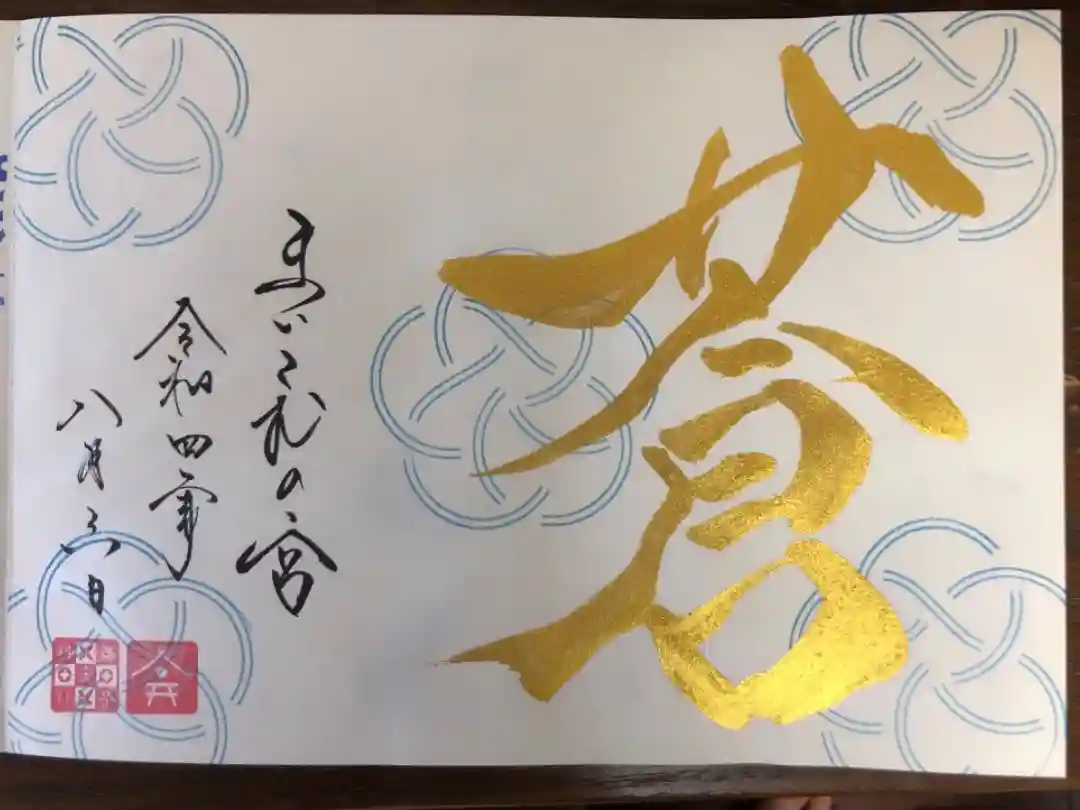 蒼
まいこれの宮
令和四年
八月六日